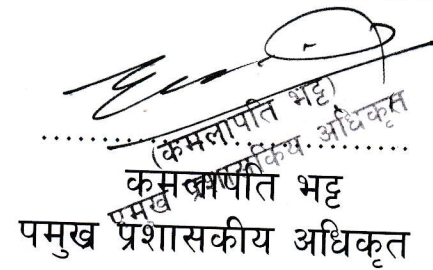 (कमलापति भट्ट)
प्रमुख प्रशासकीय अधिकृत
कमलापति भट्ट
पमुख प्रशासकीय अधिकृत